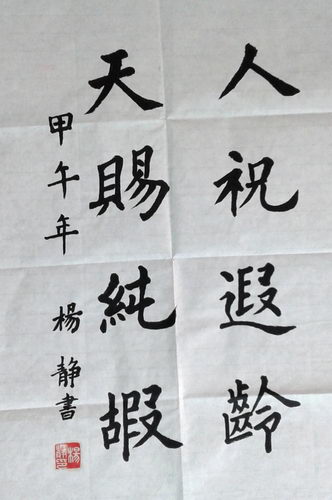 人祝遐齡
天賜純嘏
甲午年 楊靜書